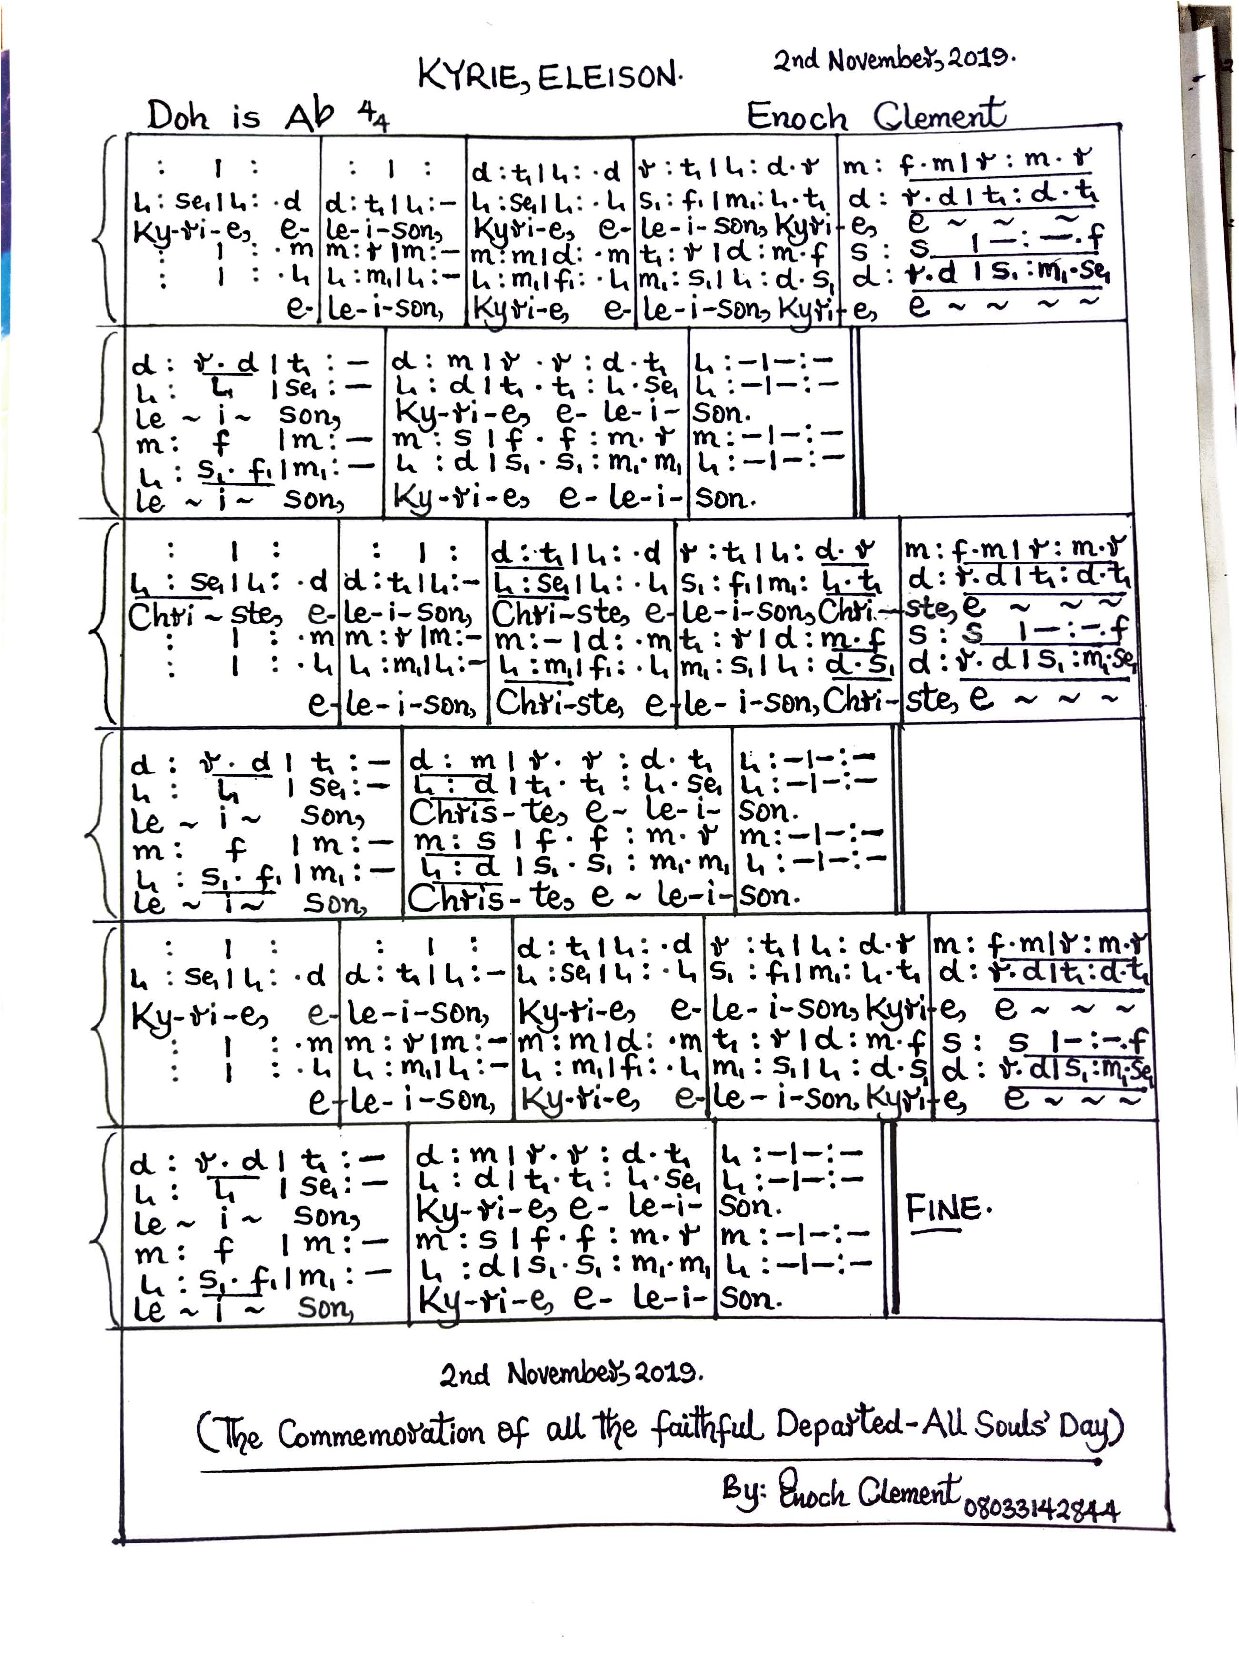 KYRIE, ELEISON.
2nd November, 2019.
Doh is Ab 4/4
Enoch Clement
: | : | : | : | d:t₁|l₁:.d | r:t₁|l₁:d.r | m:f.m|r:m.r
l₁:se₁|l₁:.d | d:t₁|l₁:- | l₁:se₁|l₁:.l₁ | s₁:f₁|m₁:l₁.t₁ | d:r.d|t₁:d.t₁
Ky-ri-e, e- le-i-son, Kyri-e, e- le-i-son, Kyri-e, e ~ ~ ~
: | :.m | m:r|m:- | m:m|d:.m | t₁:r|d:m.f | s:s|-:-.f
: | :.l₁ | l₁:m₁|l₁:- | l₁:m₁|f₁:.l₁ | m₁:s₁|l₁:d.s₁ | d:r.d|s₁:m₁.se₁
e- le-i-son, Kyri-e, e- le-i-son, Kyri-e, e ~ ~ ~ ~
d:r.d|t₁:- | d:m|r.r:d.t₁ | l₁:-|-:-
l₁:l₁|se₁:- | l₁:d|t₁.t₁:l₁.se₁ | l₁:-|-:-
le ~ i ~ son, Ky-ri-e, e- le-i- son.
m:f|m:- | m:s|f.f:m.r | m:-|-:-
l₁:s₁.f₁|m₁:- | l₁:d|s₁.s₁:m₁.m₁ | l₁:-|-:-
le ~ i ~ son, Ky-ri-e, e- le-i- son.
: | : | : | : | d:t₁|l₁:.d | r:t₁|l₁:d.r | m:f.m|r:m.r
l₁:se₁|l₁:.d | d:t₁|l₁:- | l₁:se₁|l₁:.l₁ | s₁:f₁|m₁:l₁.t₁ | d:r.d|t₁:d.t₁
Chri ~ ste, e- le-i-son, Chri-ste, e- le-i-son, Chri-ste, e ~ ~ ~
: | :.m | m:r|m:- | m:-|d:.m | t₁:r|d:m.f | s:s|-:-.f
: | :.l₁ | l₁:m₁|l₁:- | l₁:m₁|f₁:.l₁ | m₁:s₁|l₁:d.s₁ | d:r.d|s₁:m₁.se₁
e- le-i-son, Chri-ste, e- le-i-son, Chri-ste, e ~ ~ ~
d:r.d|t₁:- | d:m|r.r:d.t₁ | l₁:-|-:-
l₁:l₁|se₁:- | l₁:d|t₁.t₁:l₁.se₁ | l₁:-|-:-
le ~ i ~ son, Chris-te, e ~ le-i- son.
m:f|m:- | m:s|f.f:m.r | m:-|-:-
l₁:s₁.f₁|m₁:- | l₁:d|s₁.s₁:m₁.m₁ | l₁:-|-:-
le ~ i ~ son, Chris-te, e ~ le-i- son.
: | : | : | : | d:t₁|l₁:.d | r:t₁|l₁:d.r | m:f.m|r:m.r
l₁:se₁|l₁:.d | d:t₁|l₁:- | l₁:se₁|l₁:.l₁ | s₁:f₁|m₁:l₁.t₁ | d:r.d|t₁:d.t₁
Ky-ri-e, e- le-i-son, Ky-ri-e, e- le-i-son, Kyri-e, e ~ ~ ~
: | :.m | m:r|m:- | m:m|d:.m | t₁:r|d:m.f | s:s|-:-.f
: | :.l₁ | l₁:m₁|l₁:- | l₁:m₁|f₁:.l₁ | m₁:s₁|l₁:d.s₁ | d:r.d|s₁:m₁.se₁
e- le-i-son, Ky-ri-e, e- le-i-son, Kyri-e, e ~ ~ ~
d:r.d|t₁:- | d:m|r.r:d.t₁ | l₁:-|-:-
l₁:l₁|se₁:- | l₁:d|t₁.t₁:l₁.se₁ | l₁:-|-:-
le ~ i ~ son, Ky-ri-e, e- le-i- son.
FINE.
m:f|m:- | m:s|f.f:m.r | m:-|-:-
l₁:s₁.f₁|m₁:- | l₁:d|s₁.s₁:m₁.m₁ | l₁:-|-:-
le ~ i ~ son, Ky-ri-e, e- le-i- son.
2nd November, 2019.
(The Commemoration of all the faithful Departed-All Souls' Day)
By: Enoch Clement 08033142844